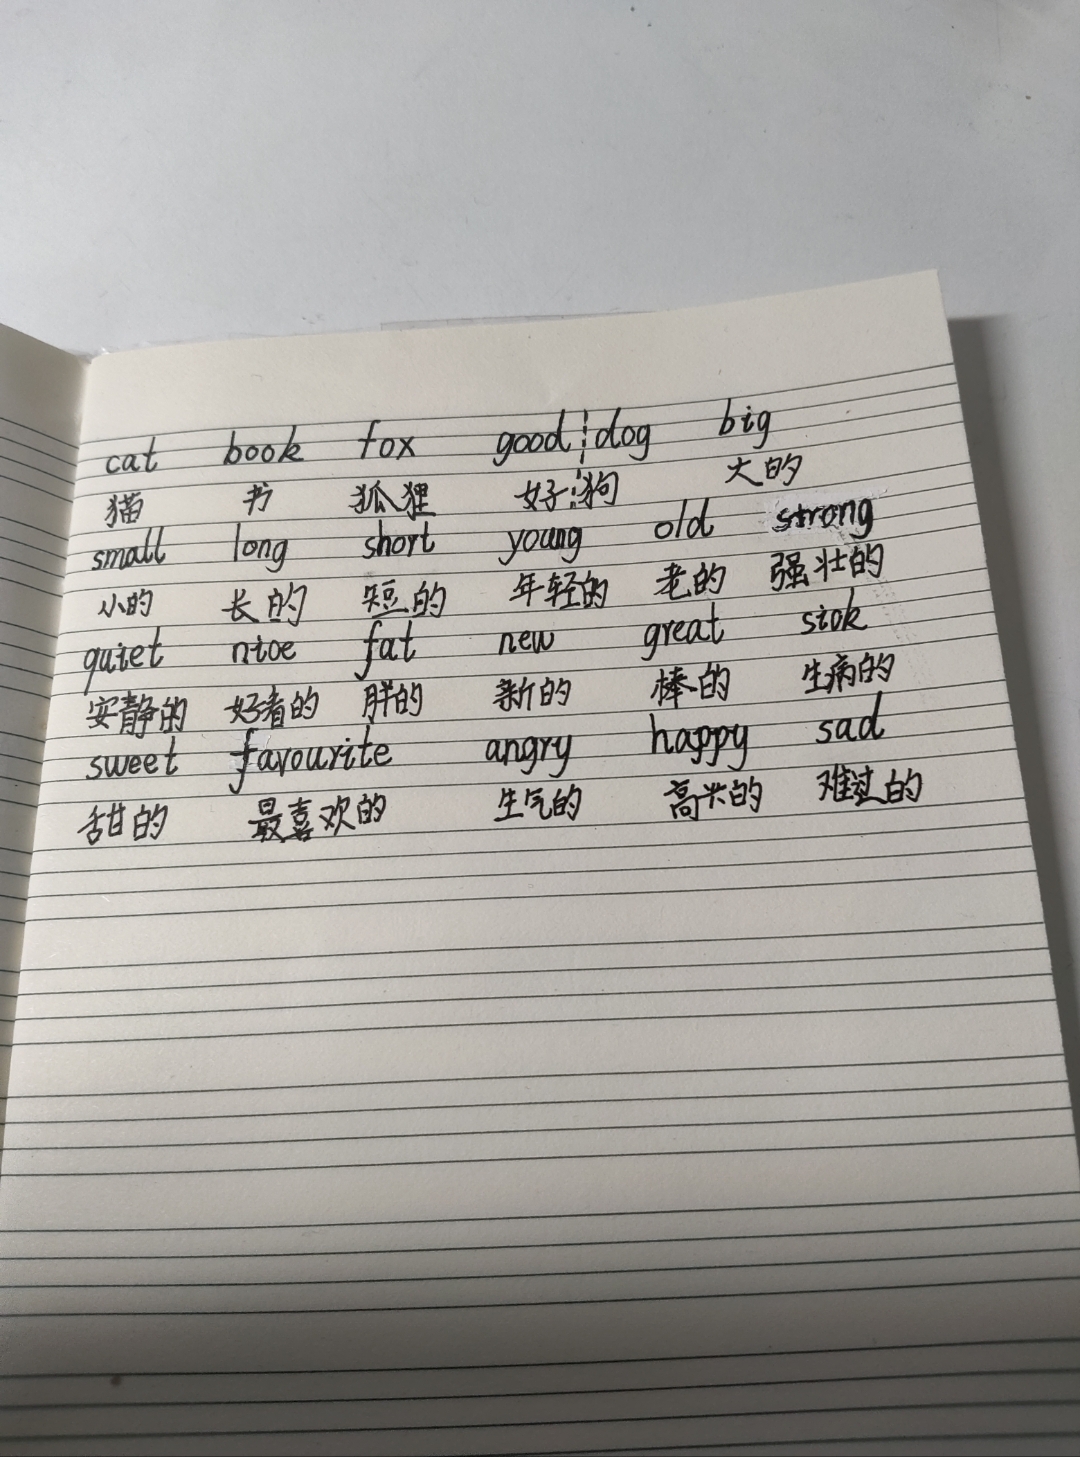 cat book fox good dog big
猫 书 狐狸 好 狗 大的
small long short young old strong
小的 长的 短的 年轻的 老的 强壮的
quiet nice fat new great sick
安静的 好看的 胖的 新的 棒的 生病的
sweet favourite angry happy sad
甜的 最喜欢的 生气的 高兴的 难过的